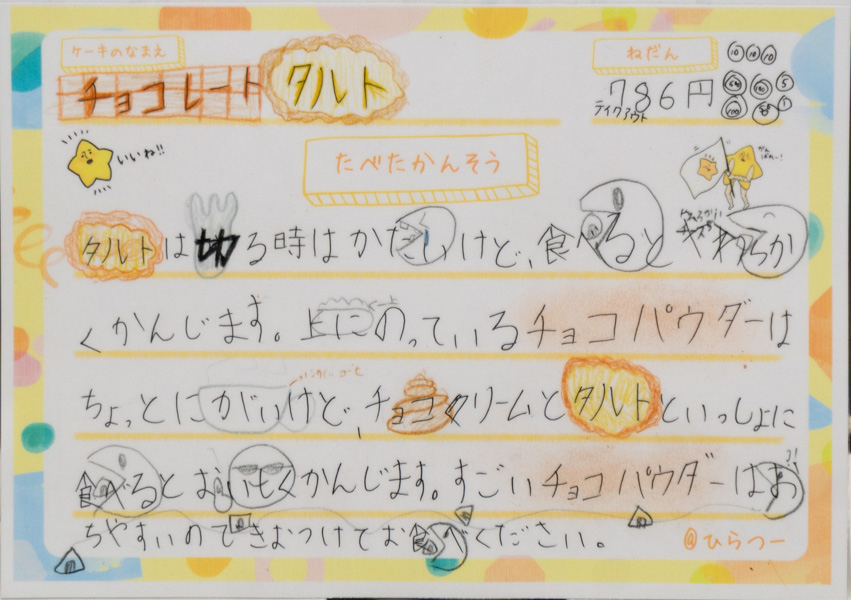 ケーキのなまえ
チョコレートタルト
ねだん
786円
テイクアウト
10 10 10
500 100 5
100 50 1
いいね!!
たべたかんそう
がんばれー!
タルトは切る時はかたいけど、食べるとやわらか
くかんじます。上にのっているチョコパウダーは
ちょっとにがいけど、チョコクリームとタルトといっしょに
食べるとおいしくかんじます。すごいチョコパウダーはお
ちやすいのできおつけてお食べください。
@ひらつー